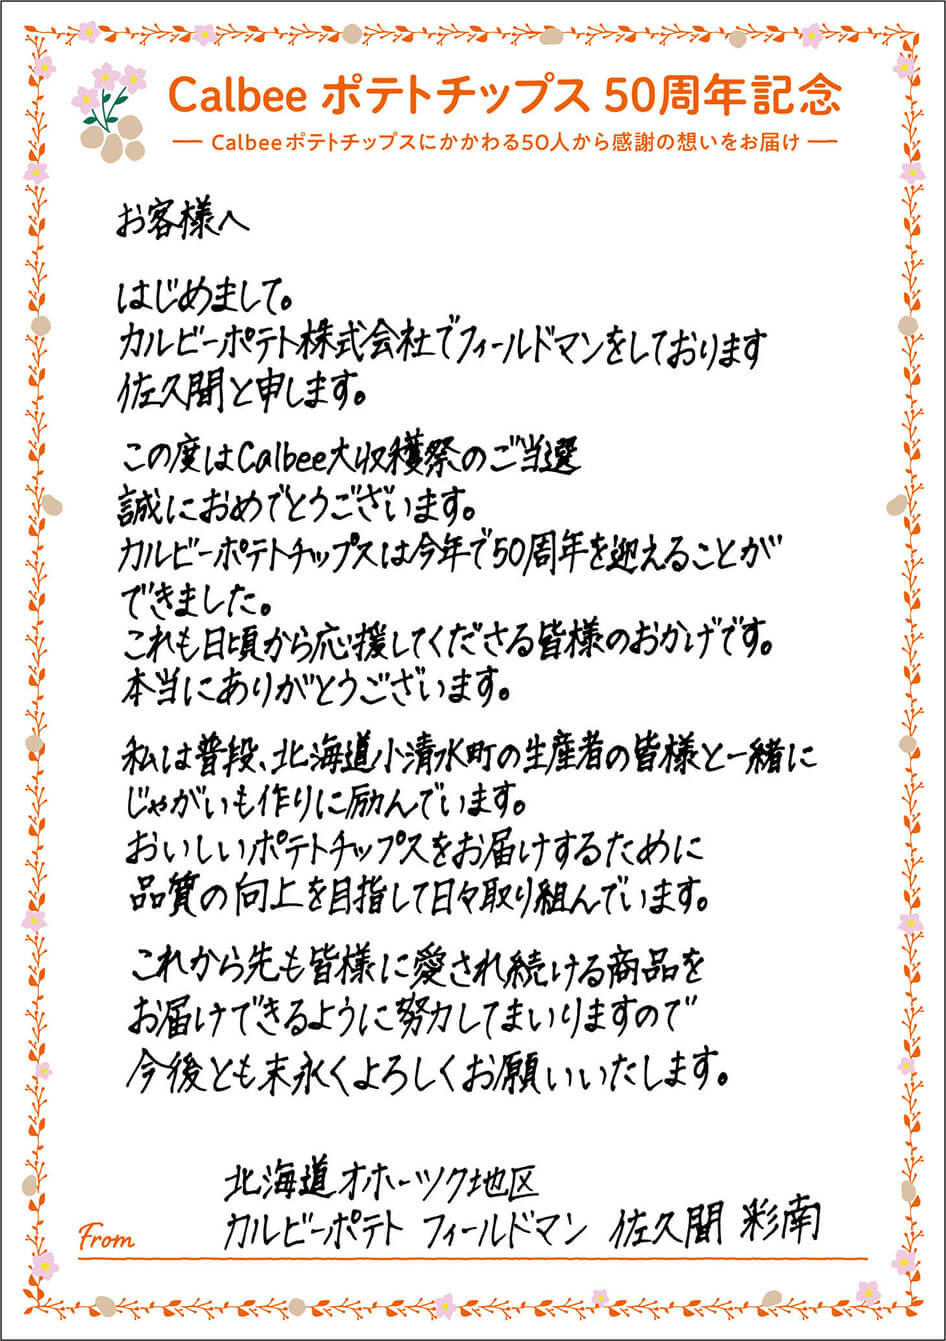 Calbee ポテトチップス 50周年記念
Calbeeポテトチップスにかかわる50人から感謝の想いをお届け
お客様へ
はじめまして。
カルビーポテト株式会社でフィールドマンをしております
佐久間と申します。
この度はCalbee大収穫祭のご当選
誠におめでとうございます。
カルビーポテトチップスは今年で50周年を迎えることが
できました。
これも日頃から応援してくださる皆様のおかげです。
本当にありがとうございます。
私は普段、北海道小清水町の生産者の皆様と一緒に
じゃがいも作りに励んでいます。
おいしいポテトチップスをお届けするために
品質の向上を目指して日々取り組んでいます。
これから先も皆様に愛され続ける商品を
お届けできるように努力してまいりますので
今後とも末永くよろしくお願いいたします。
北海道オホーツク地区
カルビーポテト フィールドマン 佐久間 彩南
From